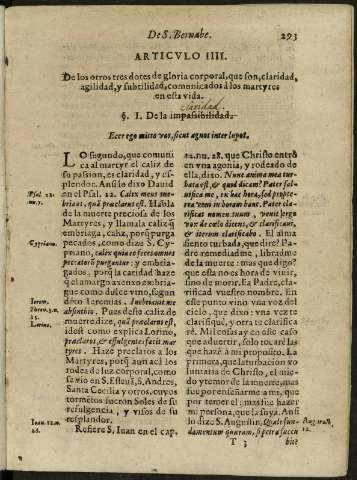 De S. Bernabe. 293
ARTICVLO IIII.
De los otros tres dotes de gloria corporal, que son, claridad,
agilidad, y subtilidad, comunicados à los martyres
en esta vida.
claridad.
§. I. De la impassibilidad.
Ecce ego mitto vos, sicut agnos inter lupos.
LO segundo, que comuni
ca al martyr el caliz de
su passion, es claridad, y es-
plendor. Ansi lo dixo David
en el Psal. 22. Calix meus ine-
brians, quã præclarus est. Habla
de la muerte preciosa de los
Martyres, y llamala caliz q̃
embriaga, caliz, porq̃ purga
pecados, como dize S. Cy-
priano,
peccatorũ purgantur: y embria-
gados, porq̃ la caridad haze
q̃ el amargo axenxo embria-
gue como dulce vino, segun
dixo Ieremias. Inebriauit me
absinthio. Pues deste caliz de
muerte dize, quã præclarus est,
idest como explica Lorino,
præclaros, & effulgentes facit mar
tyres. Haze preclaros a los
Martyres, porq̃ aun acà los
rodea de luz corporal, como
se vio en S. Esteuã, S. Andres,
Santa Cecilia y otros, cuyos
tormētos fueron Soles de su
refulgencia, y visos de su
resplandor.
Refiere S. Iuan en el cap.
Psal. 22.
nu. 7.
Cypriano.
Ierem.
Thren. 3. n.
15.
Lorino.
Ioan. 12. n.
28.
12. nu. 28. que Christo entrò
en vna agonia, y rodeado de
ella, dixo: Nunc anima mea tur-
bata est, & quid dicam? Pater sal-
uifica me, ex hac hora, sed propte-
rea veni in horam hanc. Pater cla-
rifica nomen tuum, venit ergo
vox de cœlo dicens, & clarificaui,
& iterum clarificabo. El alma
siento turbada, que dire? Pa-
dre remediadme, libradme
de la muerte: mas que digo?
que esta no es hora de viuir,
sino de morir. Ea Padre, cla-
rificad vuestro nombre. En
este punto vino vna voz del
cielo, que dixo: vna vez te
clarifiquè, y otra te clarifica
rè. Mil cosas ay en este caso
que aduertir, solo tocarè las
que hazen a mi proposito. La
primera, que la turbacion vo
luntaria de Christo, el mie-
do y temor de la muerte, mas
fue por enseñarme a mi, que
por temer el: mas fue hazer
mi persona, que la suya. Ansi
lo dize S. Augustin,
August.
T 3 bite